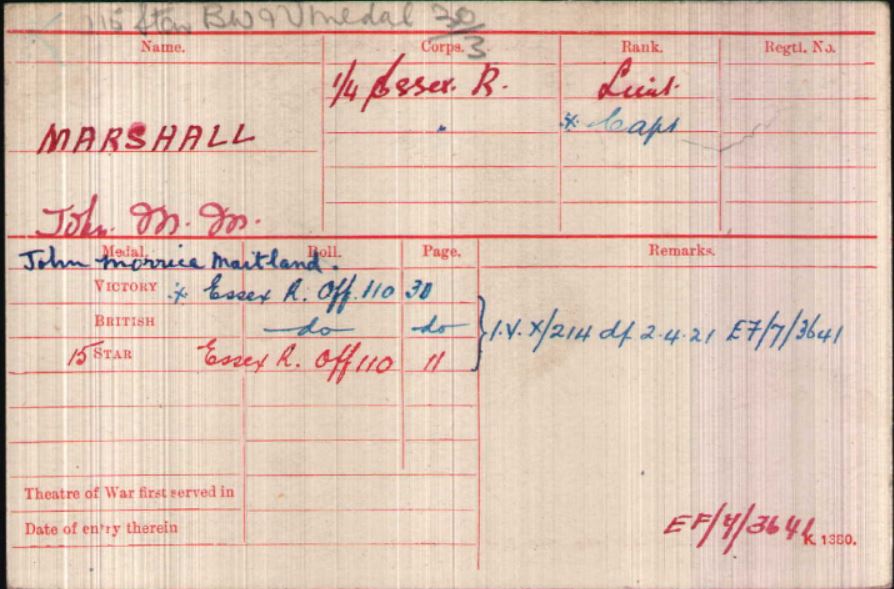 15 Star BW & V medal 30/3
Name. Corps. Rank. Regtl. No.
1/4 Essex. R. Lieut.
MARSHALL " * Capt
John. M. M.
Medal. Roll. Page. Remarks.
John Morrice Maitland.
VICTORY * Essex R. Off. 110 30
BRITISH do do } I.V. X/214 df 2.4.21 EF/7/3641
15 STAR Essex R. Off 110 11
Theatre of War first served in
Date of entry therein
EF/4/3641
K. 1380.